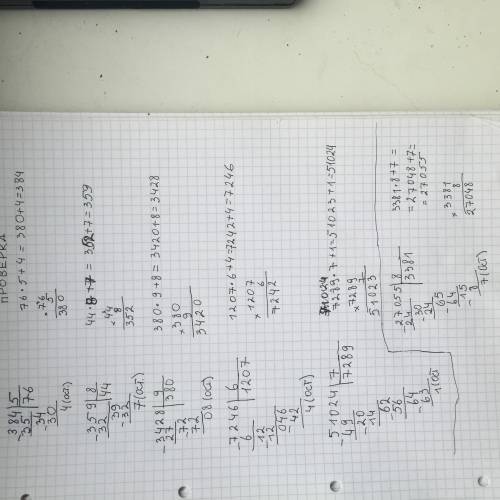 ПРОВЕРКА
384 | 5
-35 | 76
-34
30
4 (ост)
76·5+4=380+4=384
×76
5
380
-359 | 8
-32 | 44
-39
-32
7 (ост)
44·8+7=352+7=359
×44
8
352
-3428 | 9
-27 | 380
-72
72
08 (ост)
380·9+8=3420+8=3428
×380
9
3420
-7246 | 6
6 | 1207
-12
12
046
-42
4 (ост)
1207·6+4=7242+4=7246
×1207
6
7242
-51024 | 7
-49 | 7289
-20
14
-62
-56
-64
-63
1 (ост)
7289·7+1=51023+1=51024
×7289
7
51023
-27055 | 8
-24 | 3381
-30
24
-65
-64
-15
-8
7 (ост)
3381·8+7=
=27048+7=
=27055
×3381
8
27048